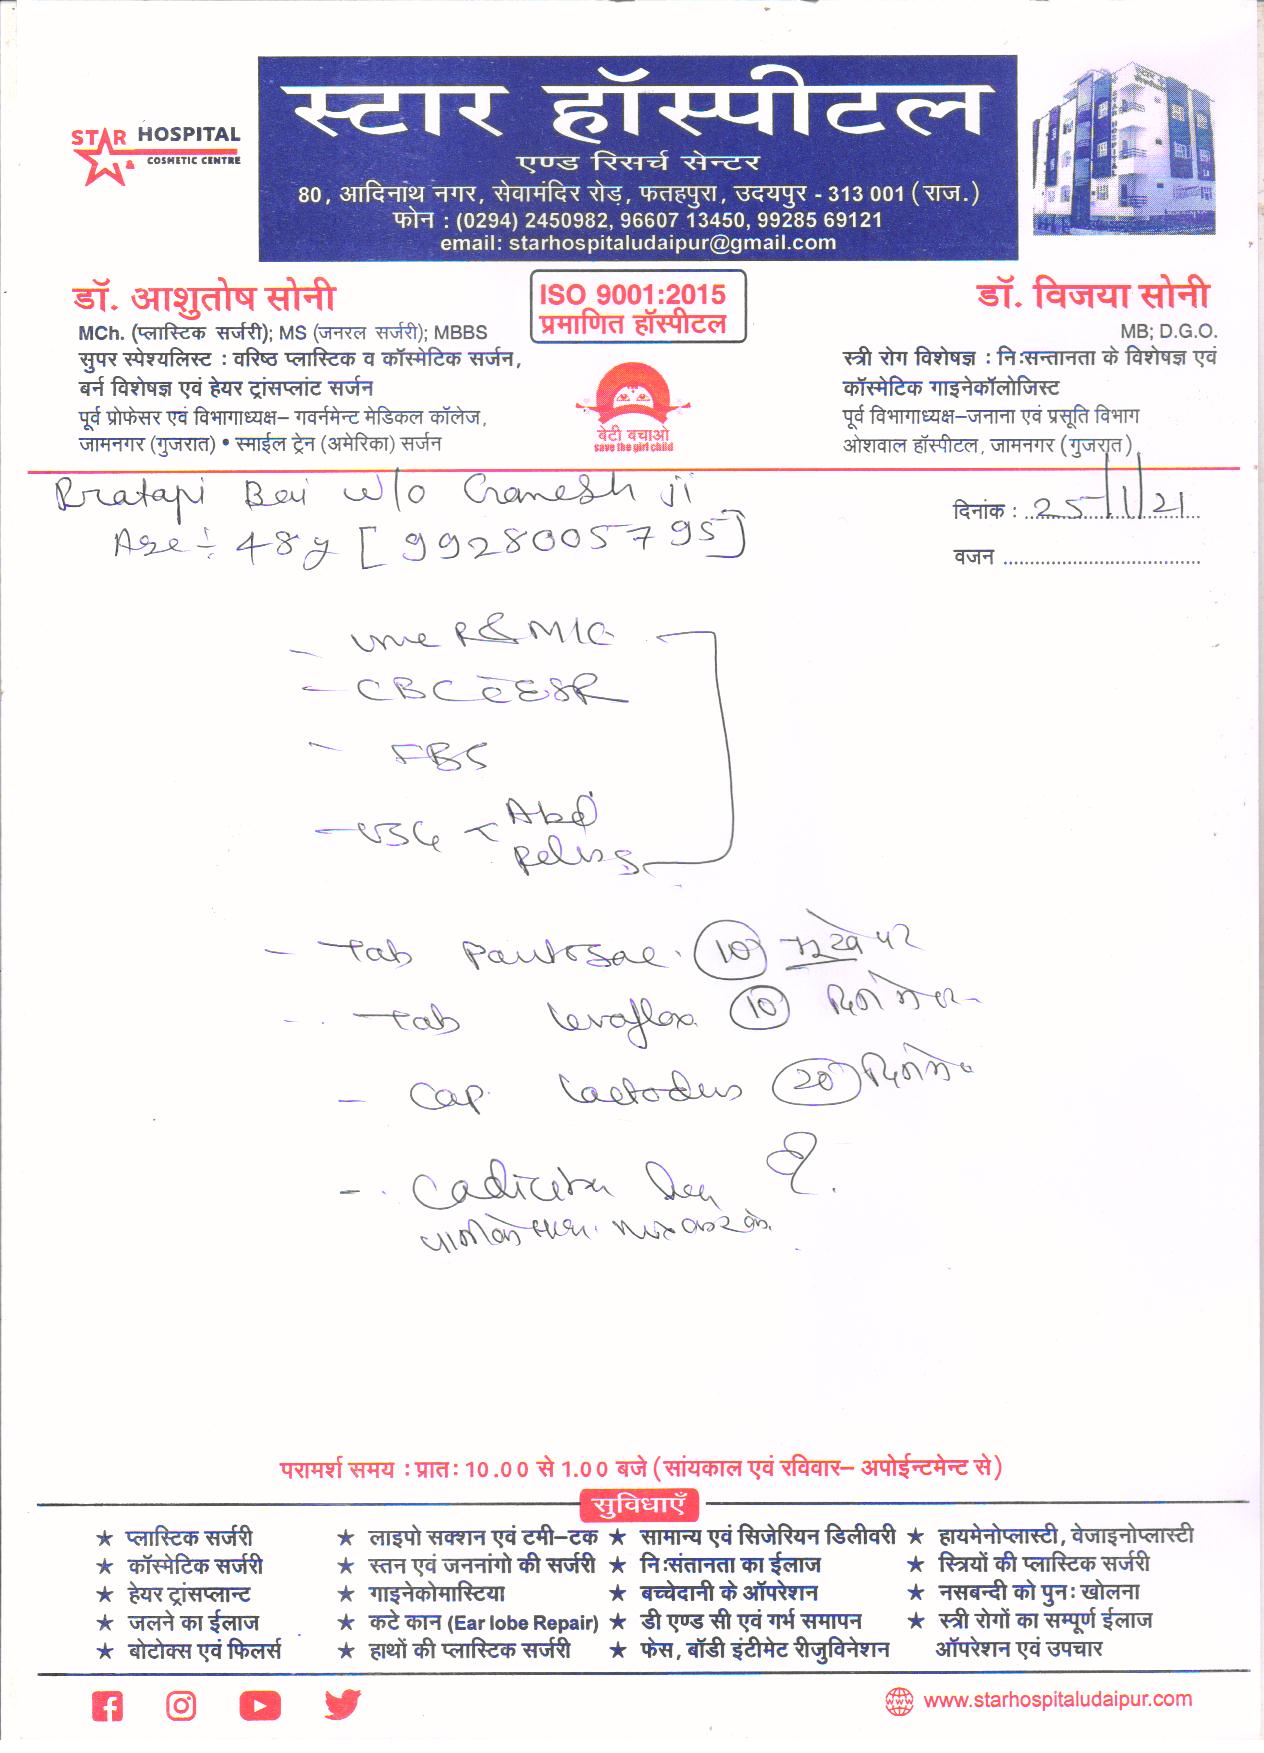 स्टार हॉस्पीटल
STAR HOSPITAL
& COSMETIC CENTRE
एण्ड रिसर्च सेन्टर
80, आदिनाथ नगर, सेवामंदिर रोड़, फतहपुरा, उदयपुर - 313 001 (राज.)
फोन : (0294) 2450982, 96607 13450, 99285 69121
email: starhospitaludaipur@gmail.com
डॉ. आशुतोष सोनी
MCh. (प्लास्टिक सर्जरी); MS (जनरल सर्जरी); MBBS
सुपर स्पेश्यलिस्ट : वरिष्ठ प्लास्टिक व कॉस्मेटिक सर्जन,
बर्न विशेषज्ञ एवं हेयर ट्रांसप्लांट सर्जन
पूर्व प्रोफेसर एवं विभागाध्यक्ष– गवर्नमेन्ट मेडिकल कॉलेज,
जामनगर (गुजरात) • स्माईल ट्रेन (अमेरिका) सर्जन
ISO 9001:2015
प्रमाणित हॉस्पीटल
बेटी बचाओ
save the girl child
डॉ. विजया सोनी
MB; D.G.O.
स्त्री रोग विशेषज्ञ : निःसन्तानता के विशेषज्ञ एवं
कॉस्मेटिक गाइनेकॉलोजिस्ट
पूर्व विभागाध्यक्ष–जनाना एवं प्रसूति विभाग
ओशवाल हॉस्पीटल, जामनगर (गुजरात)
Pratapi Bai w/o Ganesh ji
दिनांक : 25/1/21
Age ÷ 48y [9928005795]
वजन
- R & MIC
- CBC c̄ ESR
- FBS
- USG < Abd
Pelvis
- Tab Pantosac. 10 भूखे पर
- Tab 10 दिन में
- Cap. 20 दिन में
-
परामर्श समय : प्रातः 10.00 से 1.00 बजे (सांयकाल एवं रविवार– अपोईन्टमेन्ट से)
सुविधाएँ
★ प्लास्टिक सर्जरी ★ लाइपो सक्शन एवं टमी–टक ★ सामान्य एवं सिजेरियन डिलीवरी ★ हायमेनोप्लास्टी, वेजाइनोप्लास्टी
★ कॉस्मेटिक सर्जरी ★ स्तन एवं जननांगो की सर्जरी ★ निःसंतानता का ईलाज ★ स्त्रियों की प्लास्टिक सर्जरी
★ हेयर ट्रांसप्लान्ट ★ गाइनेकोमास्टिया ★ बच्चेदानी के ऑपरेशन ★ नसबन्दी को पुनः खोलना
★ जलने का ईलाज ★ कटे कान (Ear lobe Repair) ★ डी एण्ड सी एवं गर्भ समापन ★ स्त्री रोगों का सम्पूर्ण ईलाज
★ बोटोक्स एवं फिलर्स ★ हाथों की प्लास्टिक सर्जरी ★ फेस, बॉडी इंटीमेट रीजुविनेशन ऑपरेशन एवं उपचार
www.starhospitaludaipur.com